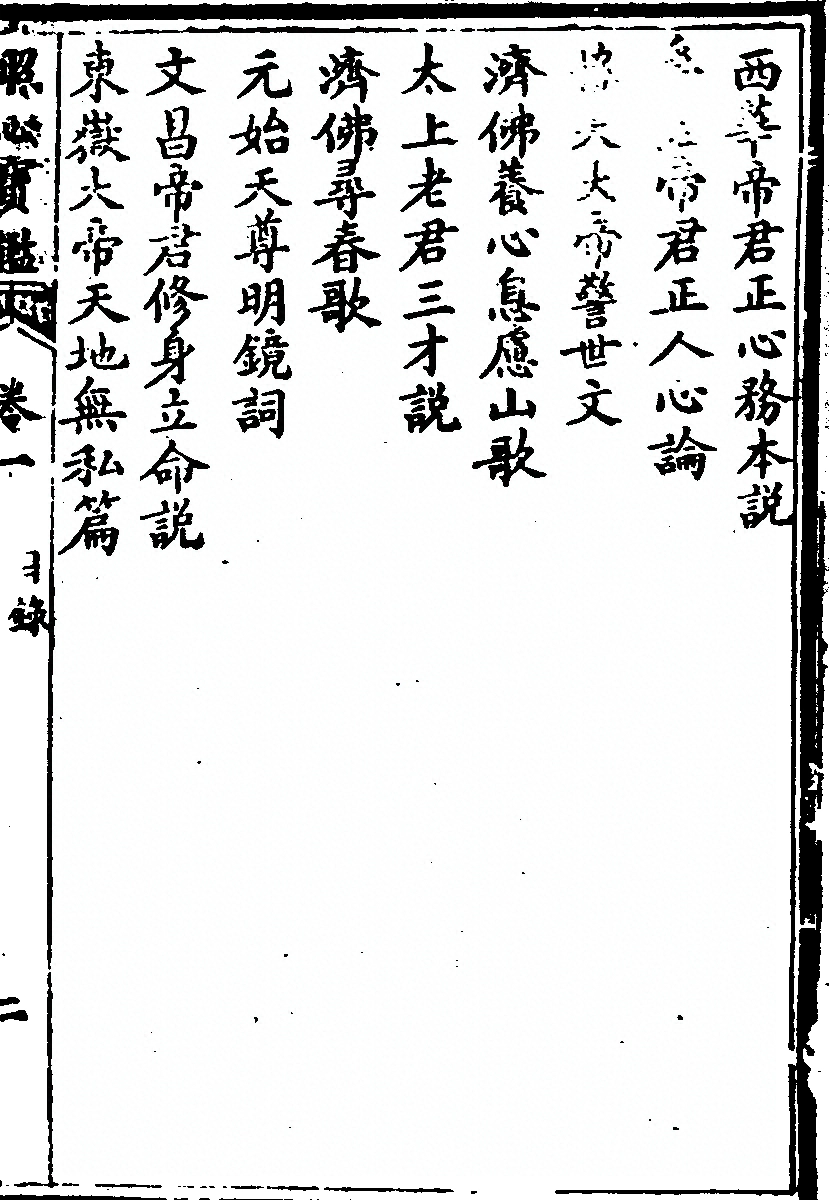 西華帝君正心務本説
帝君正人心論
大帝警世文
濟佛養心息慮山歌
太上老君三才説
濟佛尋春歌
元始天尊明鏡詞
文昌帝君修身立命説
東嶽大帝天地無私篇
照心寶鑑 卷一 目錄 二